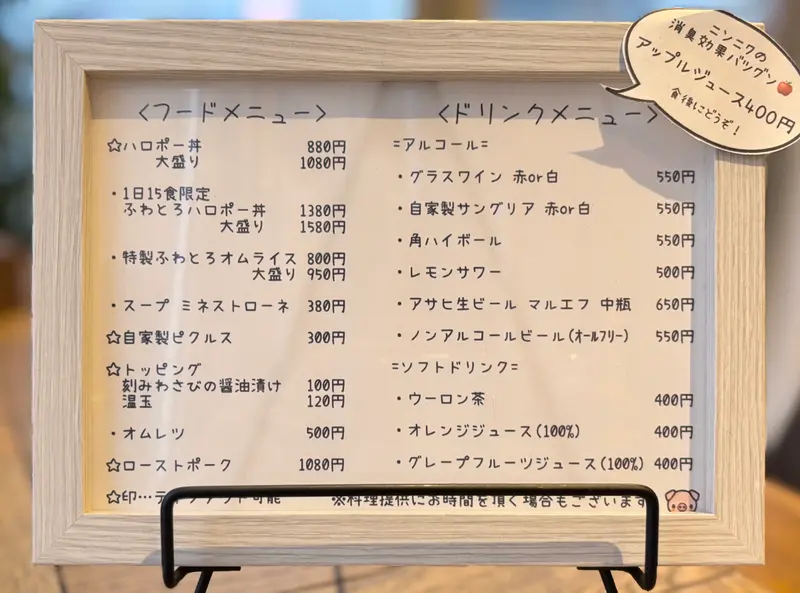 <フードメニュー>
☆ハロポー丼 880円
大盛り 1080円
・1日15食限定
ふわとろハロポー丼 1380円
大盛り 1580円
・特製ふわとろオムライス 800円
大盛り 950円
・スープ ミネストローネ 380円
☆自家製ピクルス 300円
☆トッピング
刻みわさびの醤油漬け 100円
温玉 120円
・オムレツ 500円
☆ローストポーク 1080円
☆印…テイクアウト可能
<ドリンクメニュー>
=アルコール=
・グラスワイン 赤or白 550円
・自家製サングリア 赤or白 550円
・角ハイボール 550円
・レモンサワー 500円
・アサヒ生ビール マルエフ 中瓶 650円
・ノンアルコールビール(オールフリー) 550円
=ソフトドリンク=
・ウーロン茶 400円
・オレンジジュース(100%) 400円
・グレープフルーツジュース(100%) 400円
※料理提供にお時間を頂く場合もございます
ニンニクの
消臭効果バツグン
アップルジュース400円
食後にどうぞ!